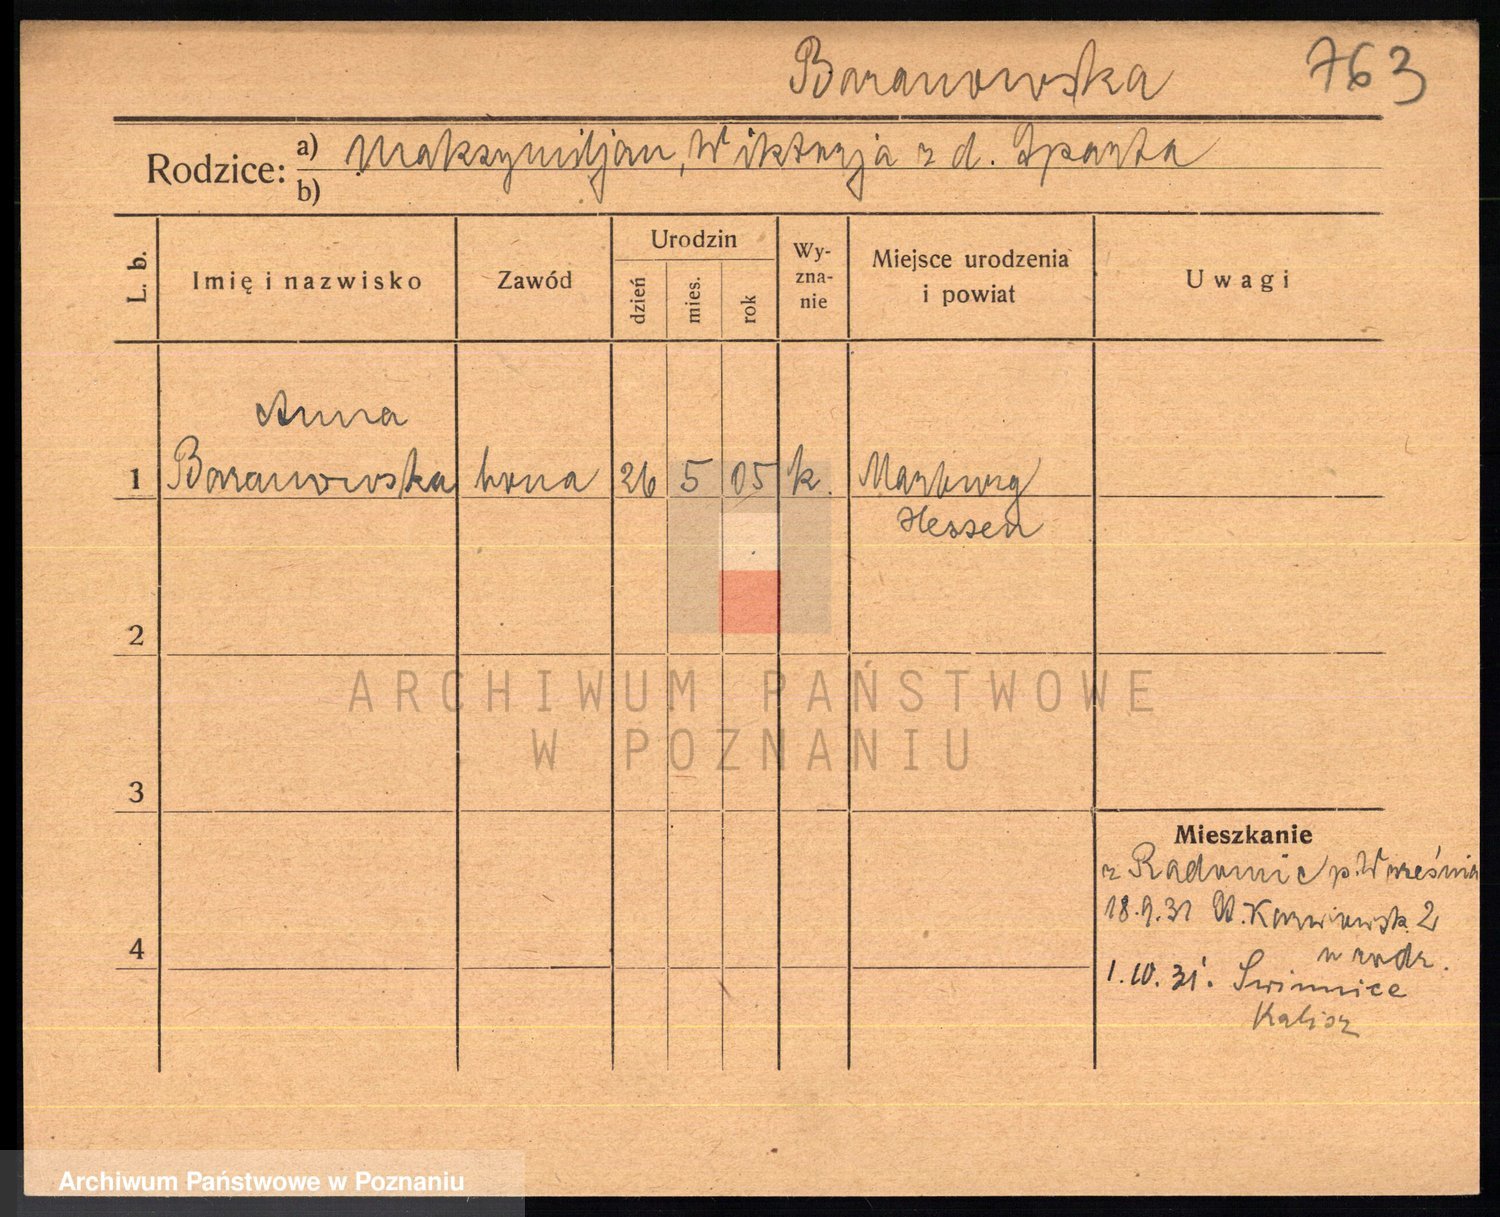 Baranowska 763
Rodzice: a) Maksymiljan, Wiktorja z d. Sparta
b)
L. b. Imię i nazwisko Zawód Urodzin dzień mies. rok Wy-zna-nie Miejsce urodzenia i powiat Uwagi
Anna
1 Baranowska żona 26 5 05 k. Marburg
Hessen
2
ARCHIWUM PAŃSTWOWE
W POZNANIU
3
Mieszkanie
z Radomic p. Września
18.9.31 2
4
1.10.31. Swinnice
Kalisz
Archiwum Państwowe w Poznaniu